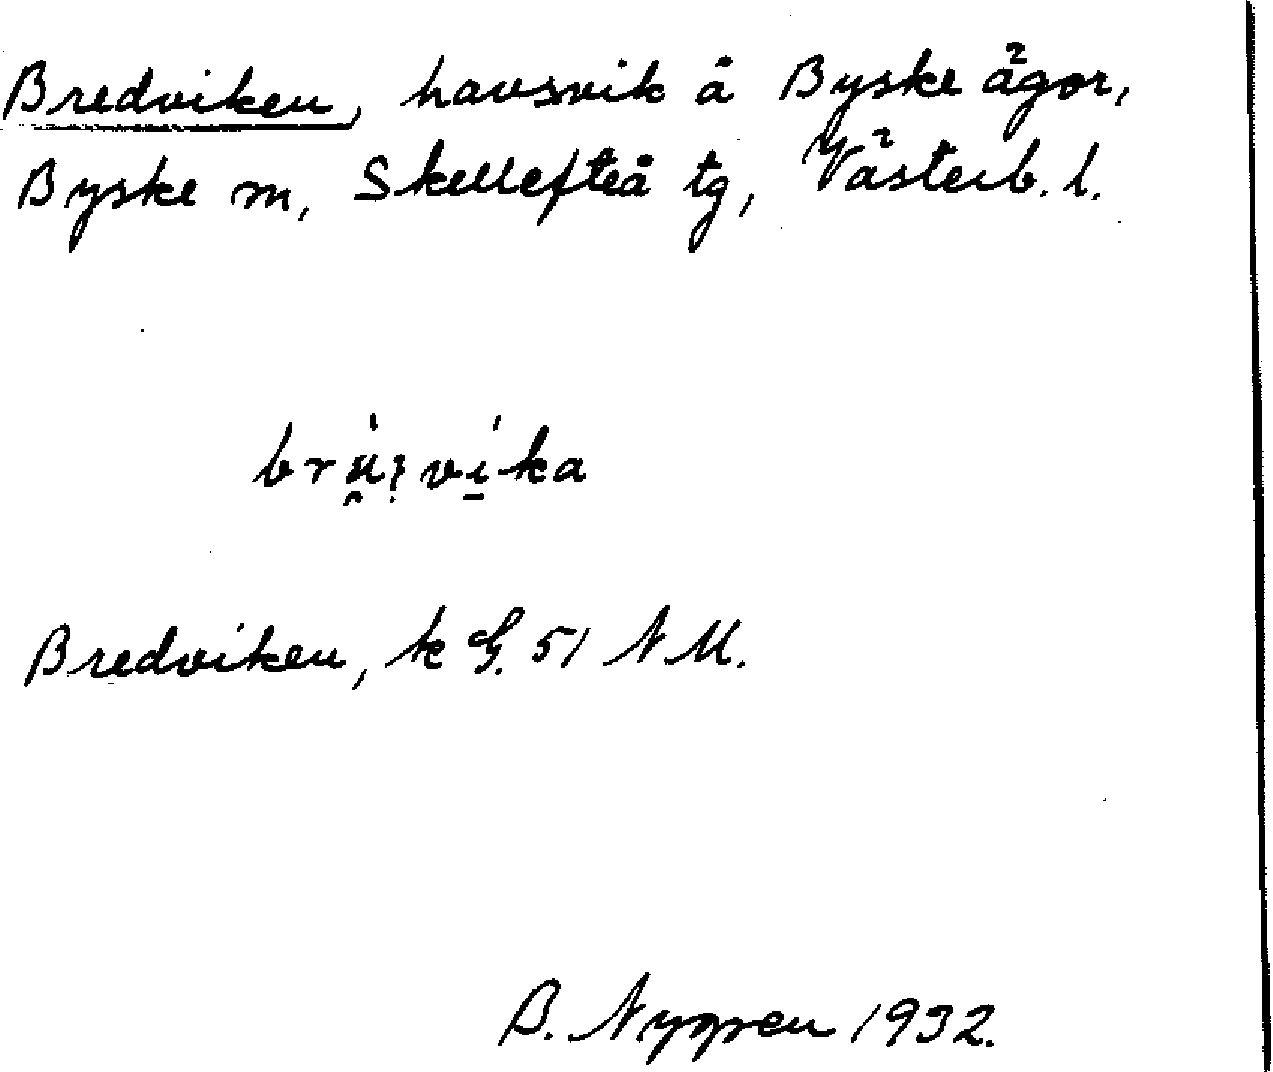 Bredviken, havsvik å Byske ägor,
Byske sn, Skellefteå tg, Västerb. l.
Bredviken, k G. 51 N M.
B. Nygren 1932.